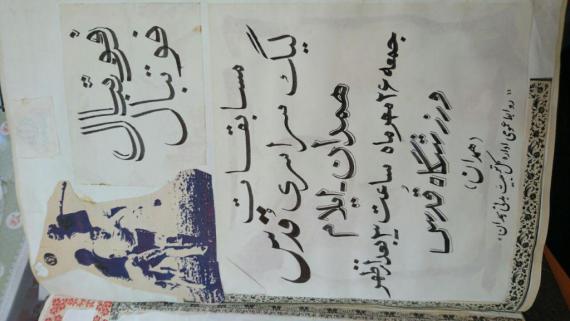 فوتبال
فوتبال
مسابقات
لیگ سراسری قدس
همدان - ایلام
جمعه ۲۶ مهرماه ساعت ۳ بعدازظهر
ورزشگاه قُدس
(همدان)
«روابط عمومی اداره کل تربیت بدنی همدان»